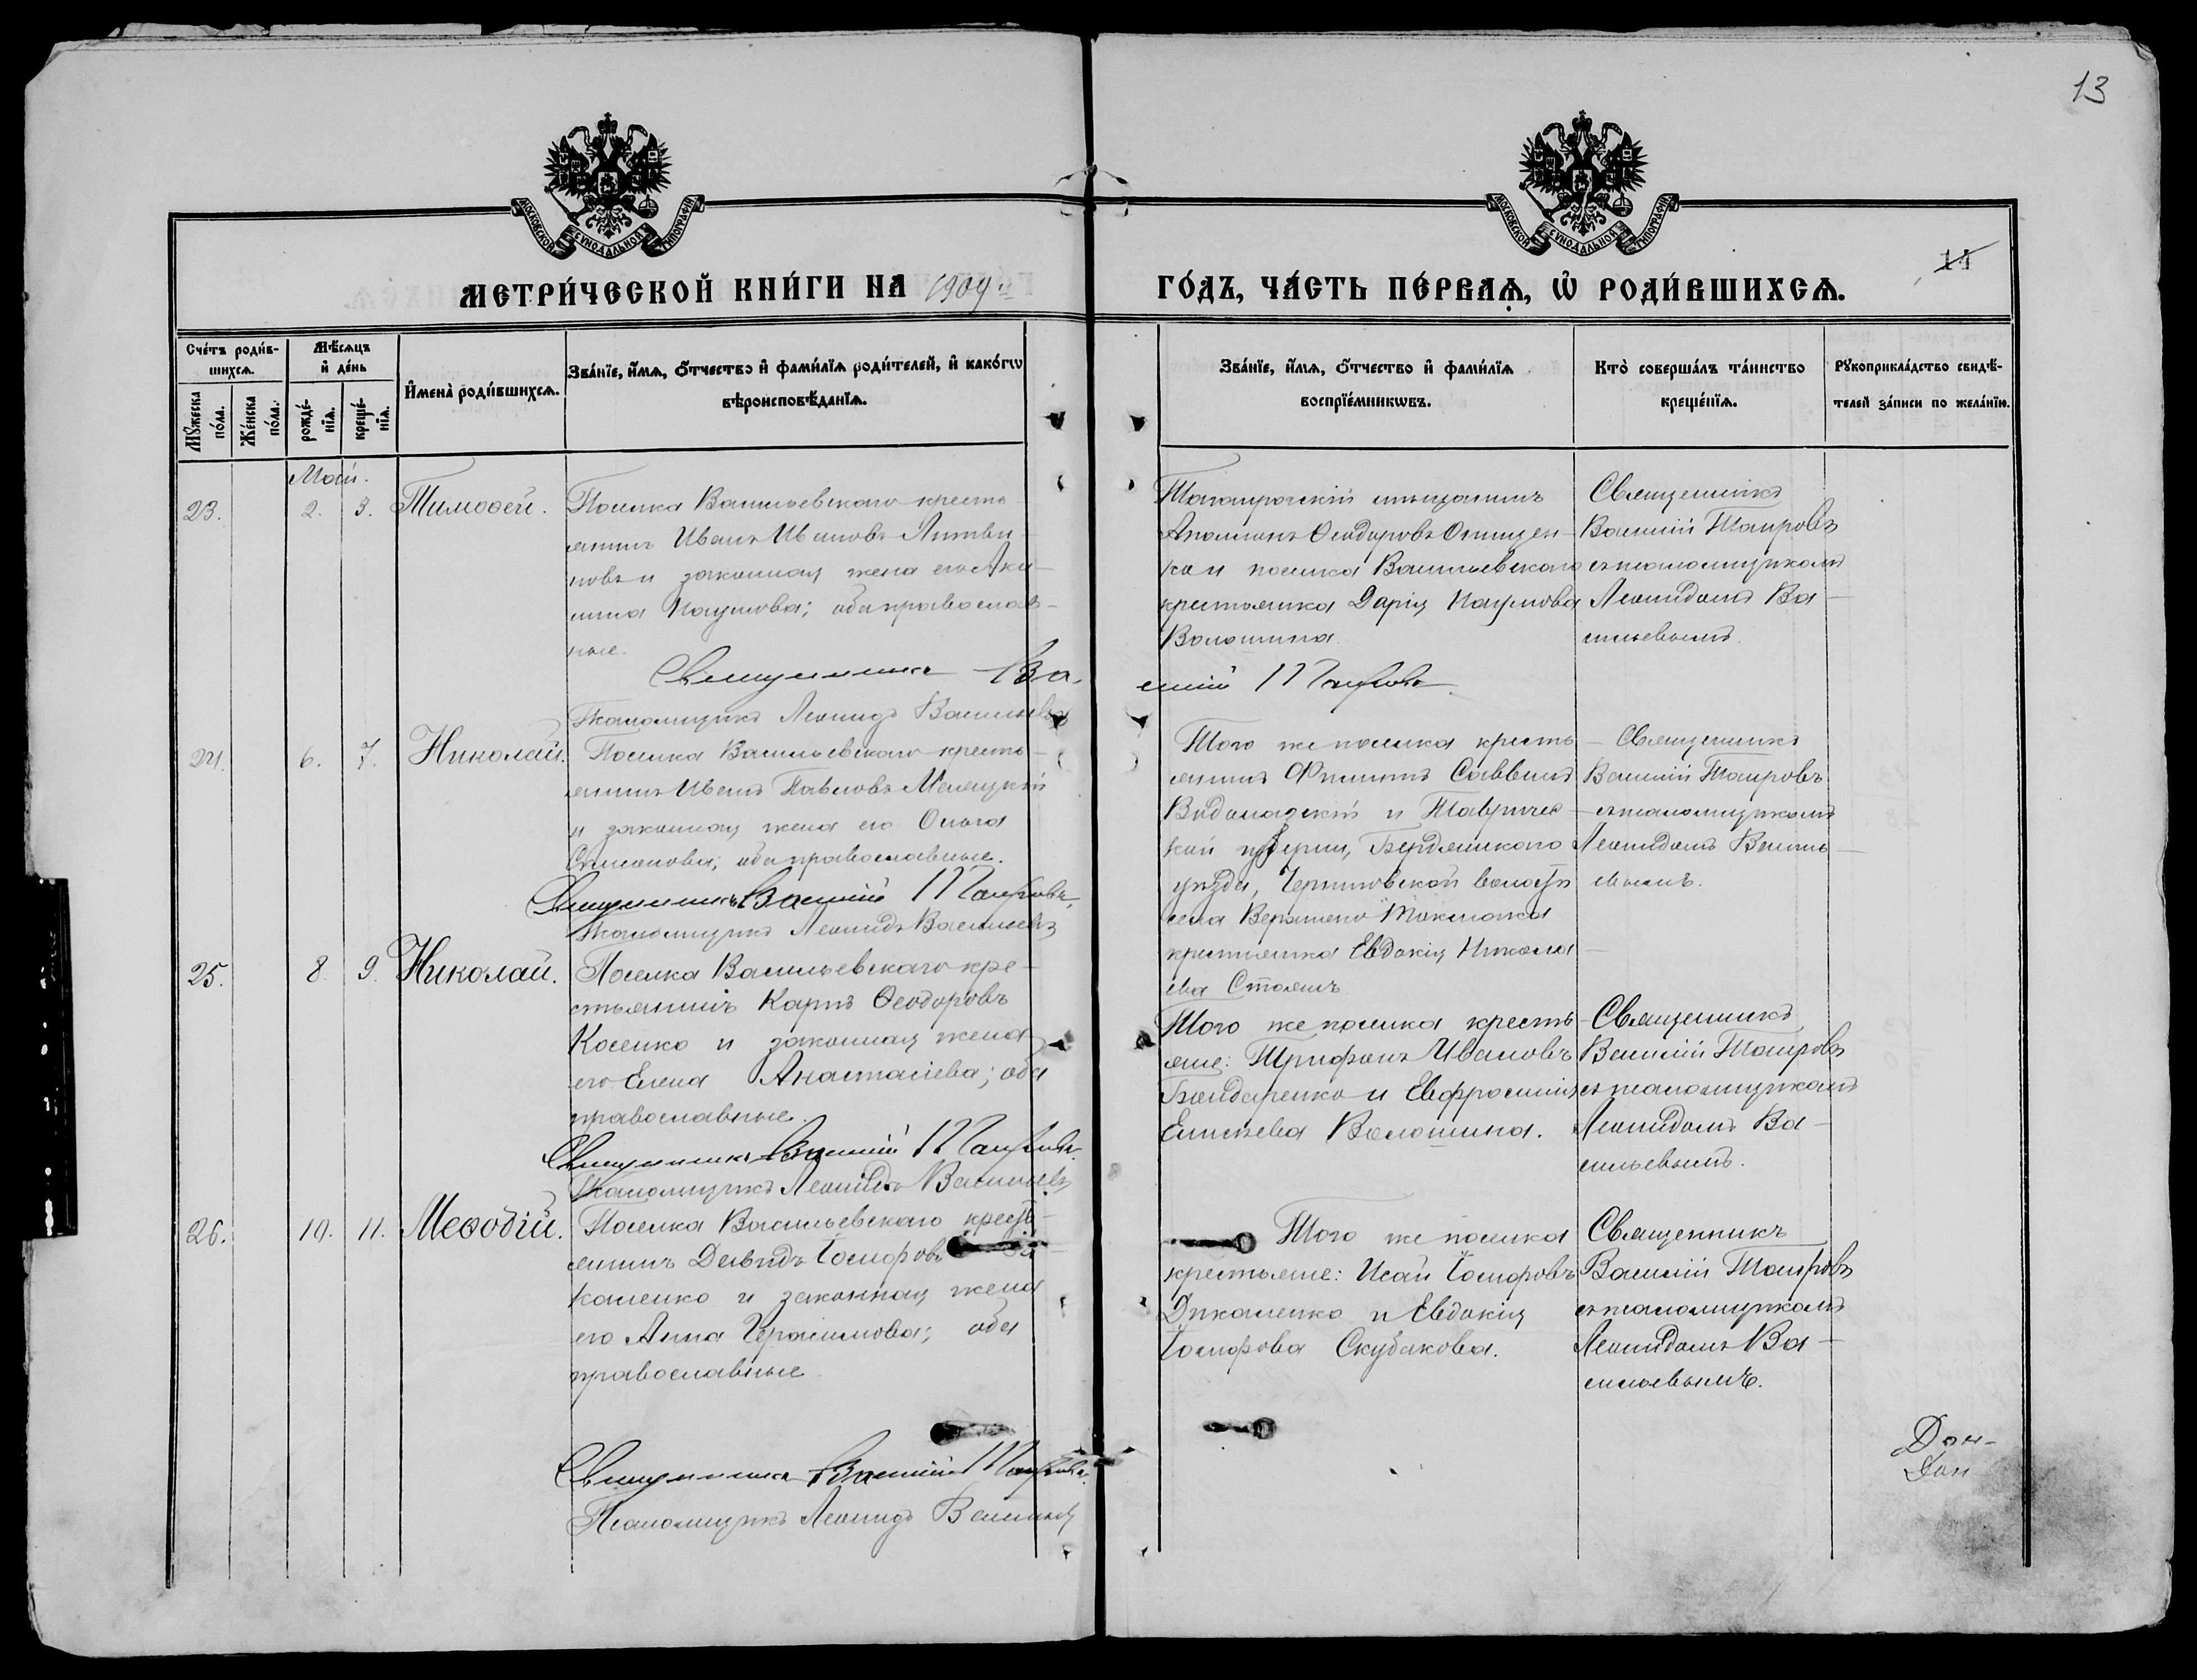 13
МОСКОВСКОЙ СѴНОДАЛЬНОЙ ТИПОГРАФІИ
МОСКОВСКОЙ СѴНОДАЛЬНОЙ ТИПОГРАФІИ
МЕТРИ́ЧЕСКОЙ КНИ́ГИ НА 1904й
ГО́ДЪ, ЧА́СТЬ ПЕ́РВАѦ, Ѡ҆ РОДИ́ВШИХСѦ.
Сче́тъ роди́в-
шихсѧ.
Мꙋ́жеска по́ла.
Же́нска по́ла.
Мѣ́сѧцъ
и҆ де́нь
рожде́-
нїѧ.
креще́-
нїѧ.
И҆мена̀ роди́вшихсѧ.
Зва́нїе, и҆́мѧ, ѻ҆́тчество и҆ фами́лїѧ роди́телей, и҆ како́гѡ
вѣроисповѣ́данїѧ.
Зва́нїе, и҆́мѧ, ѻ҆́тчество и҆ фами́лїѧ
воспрїе́мникѡвъ.
Кто̀ соверша́лъ та́инство
креще́нїѧ.
Рꙋкоприкла́дство свидѣ́-
телей за́писи по жела́нїю.
Май.
23.
2.
3.
Тимоѳей.
Поселка Васильевскаго кресть-
янинъ Иванъ Ивановъ Литви-
новъ и законная жена его Аки-
лина Наумова; оба православ-
ные.
Священникъ Ва-
силій Таировъ.
Псаломщикъ Леонидъ Васильевъ
Таганрогскій мѣщанинъ
Ѳеодоровъ Онищен-
ко и поселка Васильевскаго
крестьянка Дарія Наумова
Волошина.
Священникъ
Василій Таировъ
съ псаломщикомъ
Леонидомъ Ва-
сильевымъ.
24.
6.
7.
Николай.
Поселка Васильевскаго кресть-
янинъ Иванъ Павловъ
и законная жена его Ольга
оба православные.
Священникъ Василій Таировъ.
Псаломщикъ Леонидъ Васильевъ
Того же поселка кресть-
янинъ Филиппъ Саввинъ
и Тавричес-
кой губерніи, Бердянскаго
уѣзда, Черниговской волости
села Верхнего Токмака
крестьянка Евдокія Никола-
ева
Священникъ
Василій Таировъ
съ псаломщикомъ
Леонидомъ Василь-
евымъ.
25.
8.
9.
Николай.
Поселка Васильевскаго кре-
стьянинъ Карпъ Ѳеодоровъ
Косенко и законная жена
его Елена Анастасіева; оба
православные.
Священникъ Василій Таировъ.
Псаломщикъ Леонидъ Васильевъ
Того же поселка кресть-
яне: Трифонъ Ивановъ
Бондаренко и Евфросинія
Елисѣева Волошина.
Священникъ
Василій Таировъ
съ псаломщикомъ
Леонидомъ Ва-
сильевымъ.
26.
10.
11.
Меѳодій.
Поселка Васильевскаго кресть-
янинъ Давидъ Іосифовъ
каленко и законная жена
его Анна Герасимова; оба
православные
Священникъ Василій Таировъ.
Псаломщикъ Леонидъ Васильевъ
Того же поселка
крестьяне: Исай Іосифовъ
Дикаленко и Евдокія
Іосифова Скубакова.
Священникъ
Василій Таировъ
съ псаломщикомъ
Леонидомъ Ва-
сильевымъ.